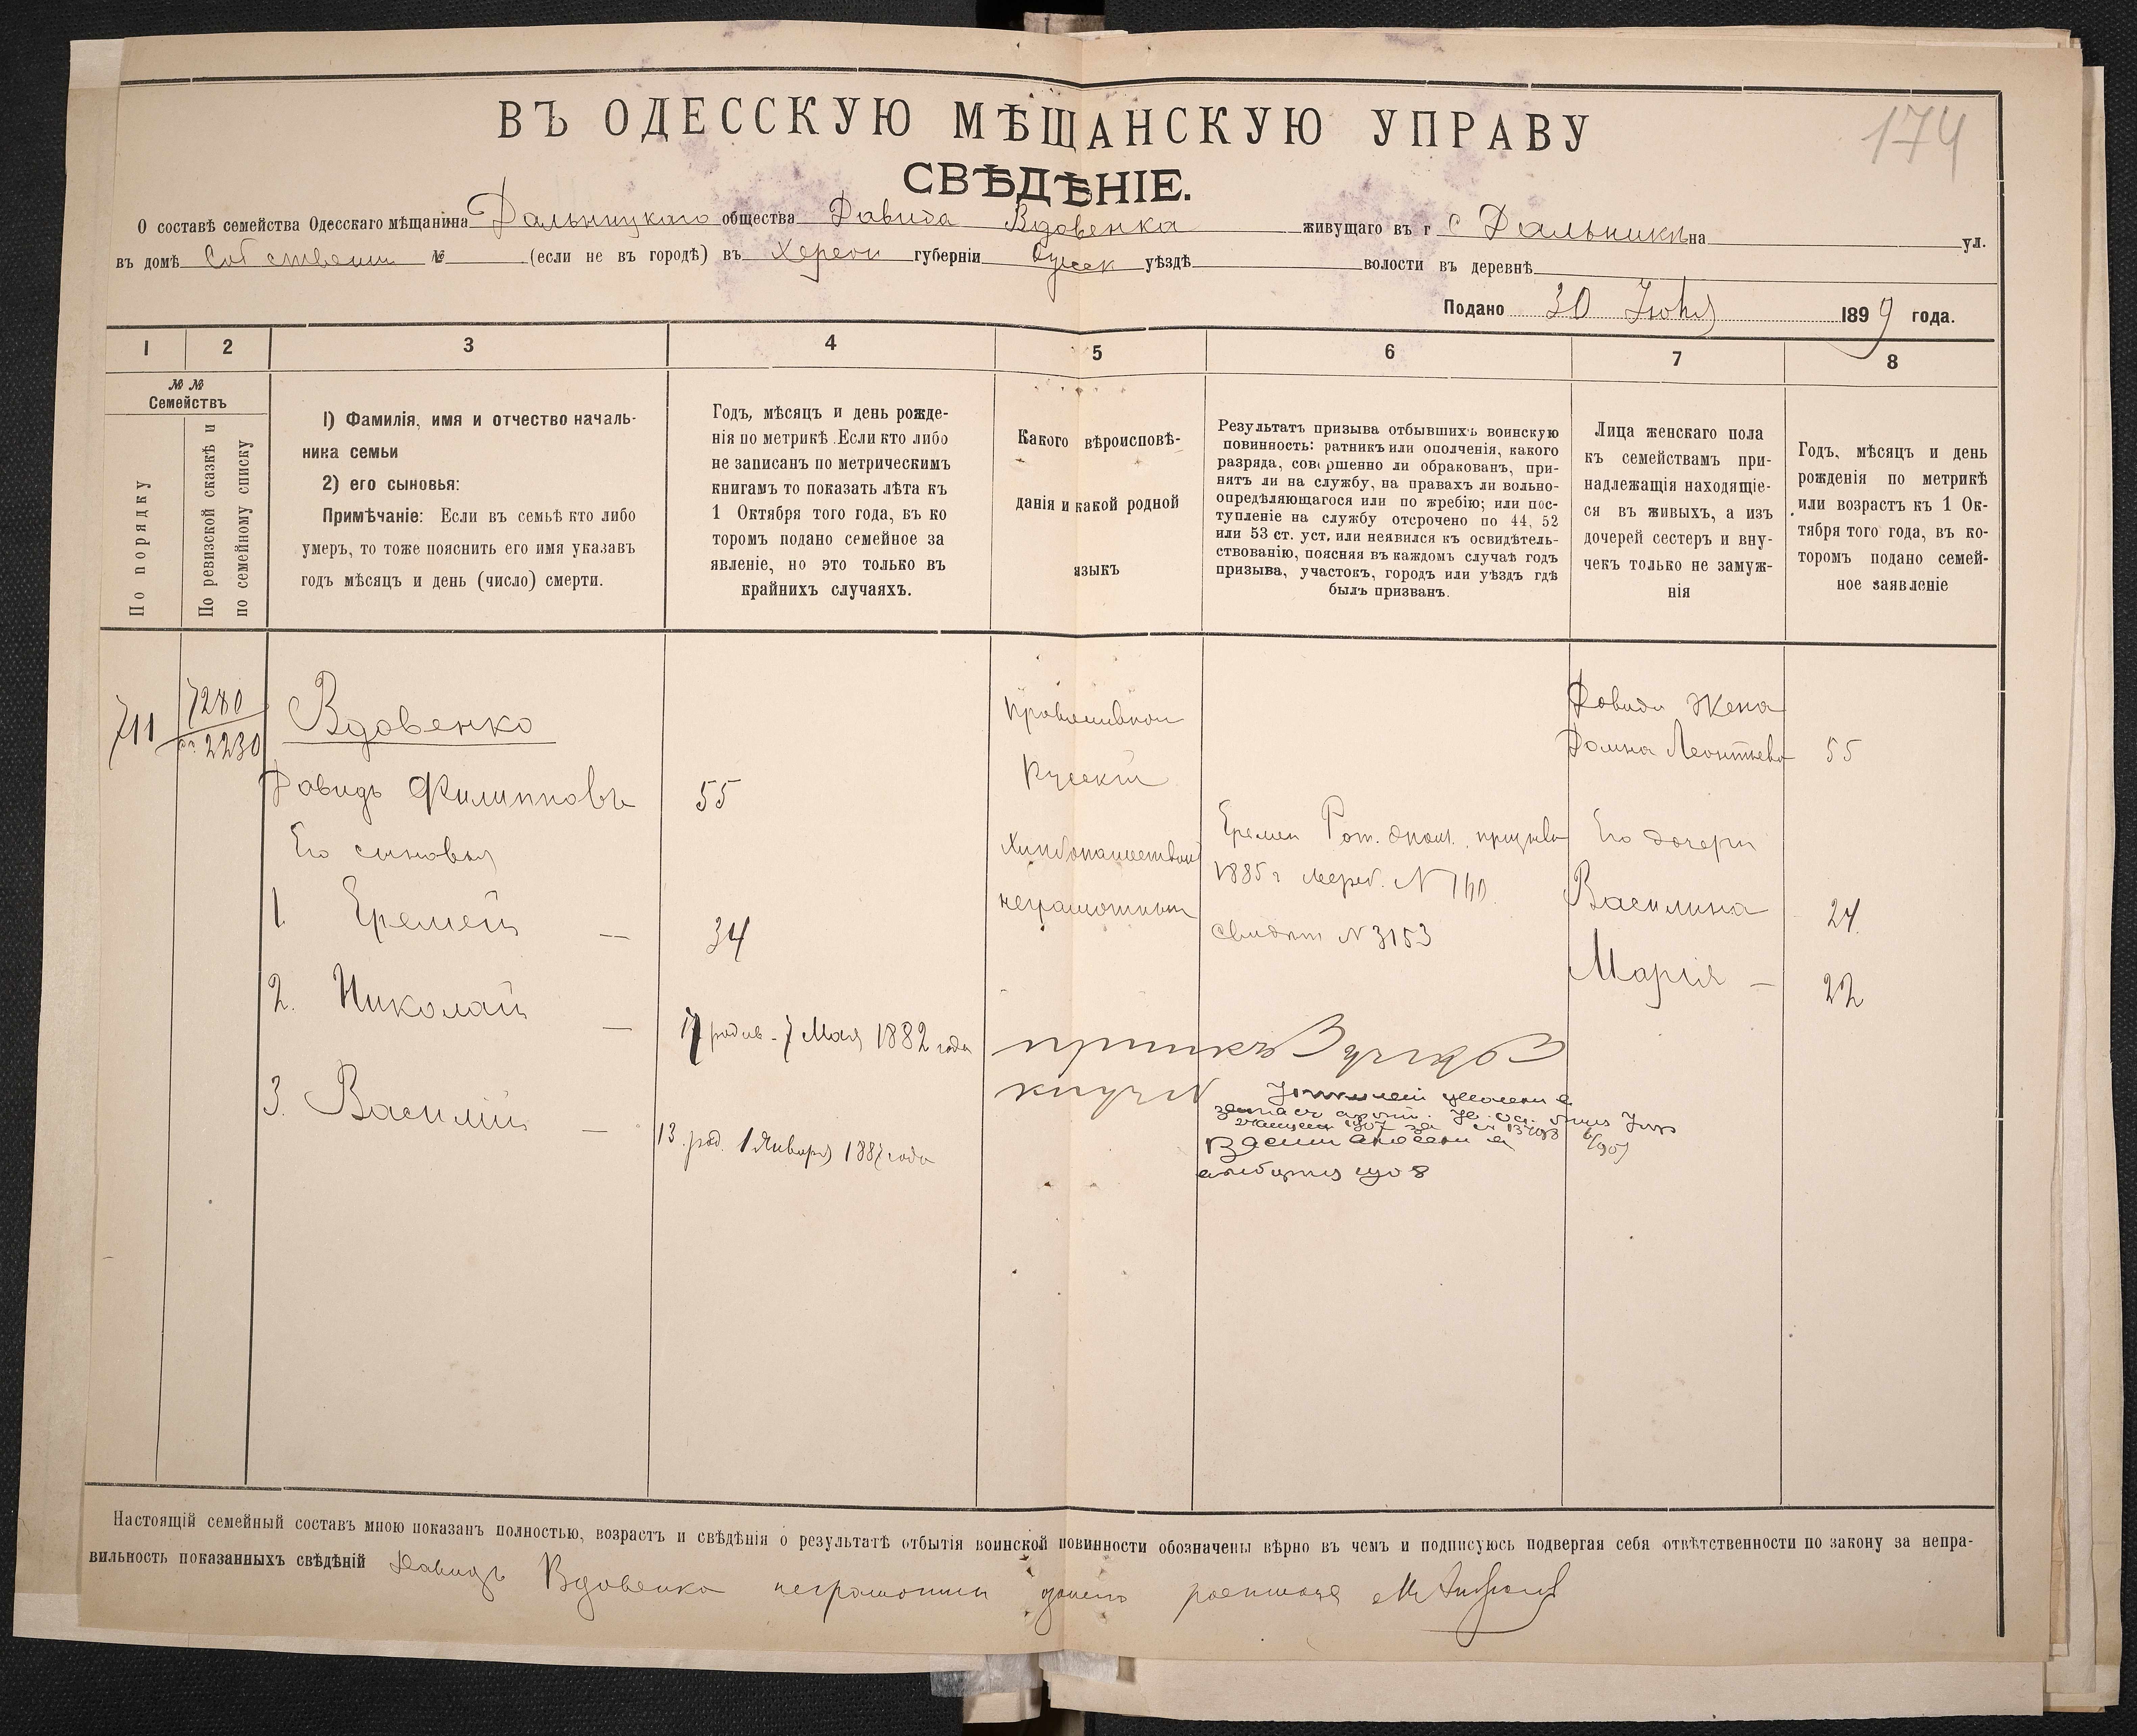 174
ВЪ ОДЕССКУЮ МѢЩАНСКУЮ УПРАВУ
СВѢДѢНІЕ.
О составѣ семейства Одесскаго мѣщанина Дальницкаго общества Давида Вдовенка живущаго въ г с Дальникъ на ул.
въ домѣ Собственн № (если не въ городѣ) въ Херсон губерніи Одесск уѣздѣ волости въ деревнѣ
Подано 30 1899 года.
1 2 3 4 5 6 7 8
№ №
Семействъ
По порядку
По ревизской сказкѣ и
по семейному списку
1) Фамилія, имя и отчество началь-
ника семьи
2) его сыновья:
Примѣчаніе: Если въ семьѣ кто либо
умеръ, то тоже пояснить его имя указавъ
годъ мѣсяцъ и день (число) смерти.
Годъ, мѣсяцъ и день рожде-
нія по метрикѣ .Если кто либо
не записанъ по метрическимъ
книгамъ то показать лѣта къ
1 Октября того года, въ ко
торомъ подано семейное за
явленіе, но это только въ
крайнихъ случаяхъ.
Какого вѣроисповѣ-
данія и какой родной
языкъ
Результатъ призыва отбывшихъ воинскую
повинность: ратникъ или ополченія, какого
разряда, совершенно ли обракованъ, при-
нятъ ли на службу, на правахъ ли вольно-
опредѣляющагося или по жребію; или пос-
тупленіе на службу отсрочено по 44, 52
или 53 ст. уст, или неявился къ освидѣтель-
ствованію, поясняя въ каждомъ случаѣ годъ
призыва, участокъ, городъ или уѣздъ гдѣ
былъ призванъ.
Лица женскаго пола
къ семействамъ при-
надлежащія находящіе-
ся въ живыхъ, а изъ
дочерей сестеръ и вну-
чекъ только не замуж-
нія
Годъ, мѣсяцъ и день
рожденія по метрикѣ
или возрастъ къ 1 Ок-
тября того года, въ ко-
торомъ подано семей-
ное заявленіе
711
2230
Вдовенко
Давидъ Филипповъ 55
Его сыновья
1. Еремей — 34
2. Николай — 17 родив. 7 Мая 1882 года
3. Василій — 13. род. 1 Января 1887 года
Православной
Русскій
Хлѣбопашеством
неграмотный
Еремей Рат. опол. призыва
1885 г жереб. N 140
свидѣт N 3153
Давида Жена
Домна Леонтьева 55
Его дочери
Василина 24
Марія — 22
Настоящій семейный составъ мною показанъ полностью, возрастъ и свѣдѣнія о результатѣ отбытія воинской повинности обозначены вѣрно въ чемъ и подписуюсь подвергая себя отвѣтственности по закону за непра-
вильность показанныхъ свѣдѣній Давидъ Вдовенко неграмотны